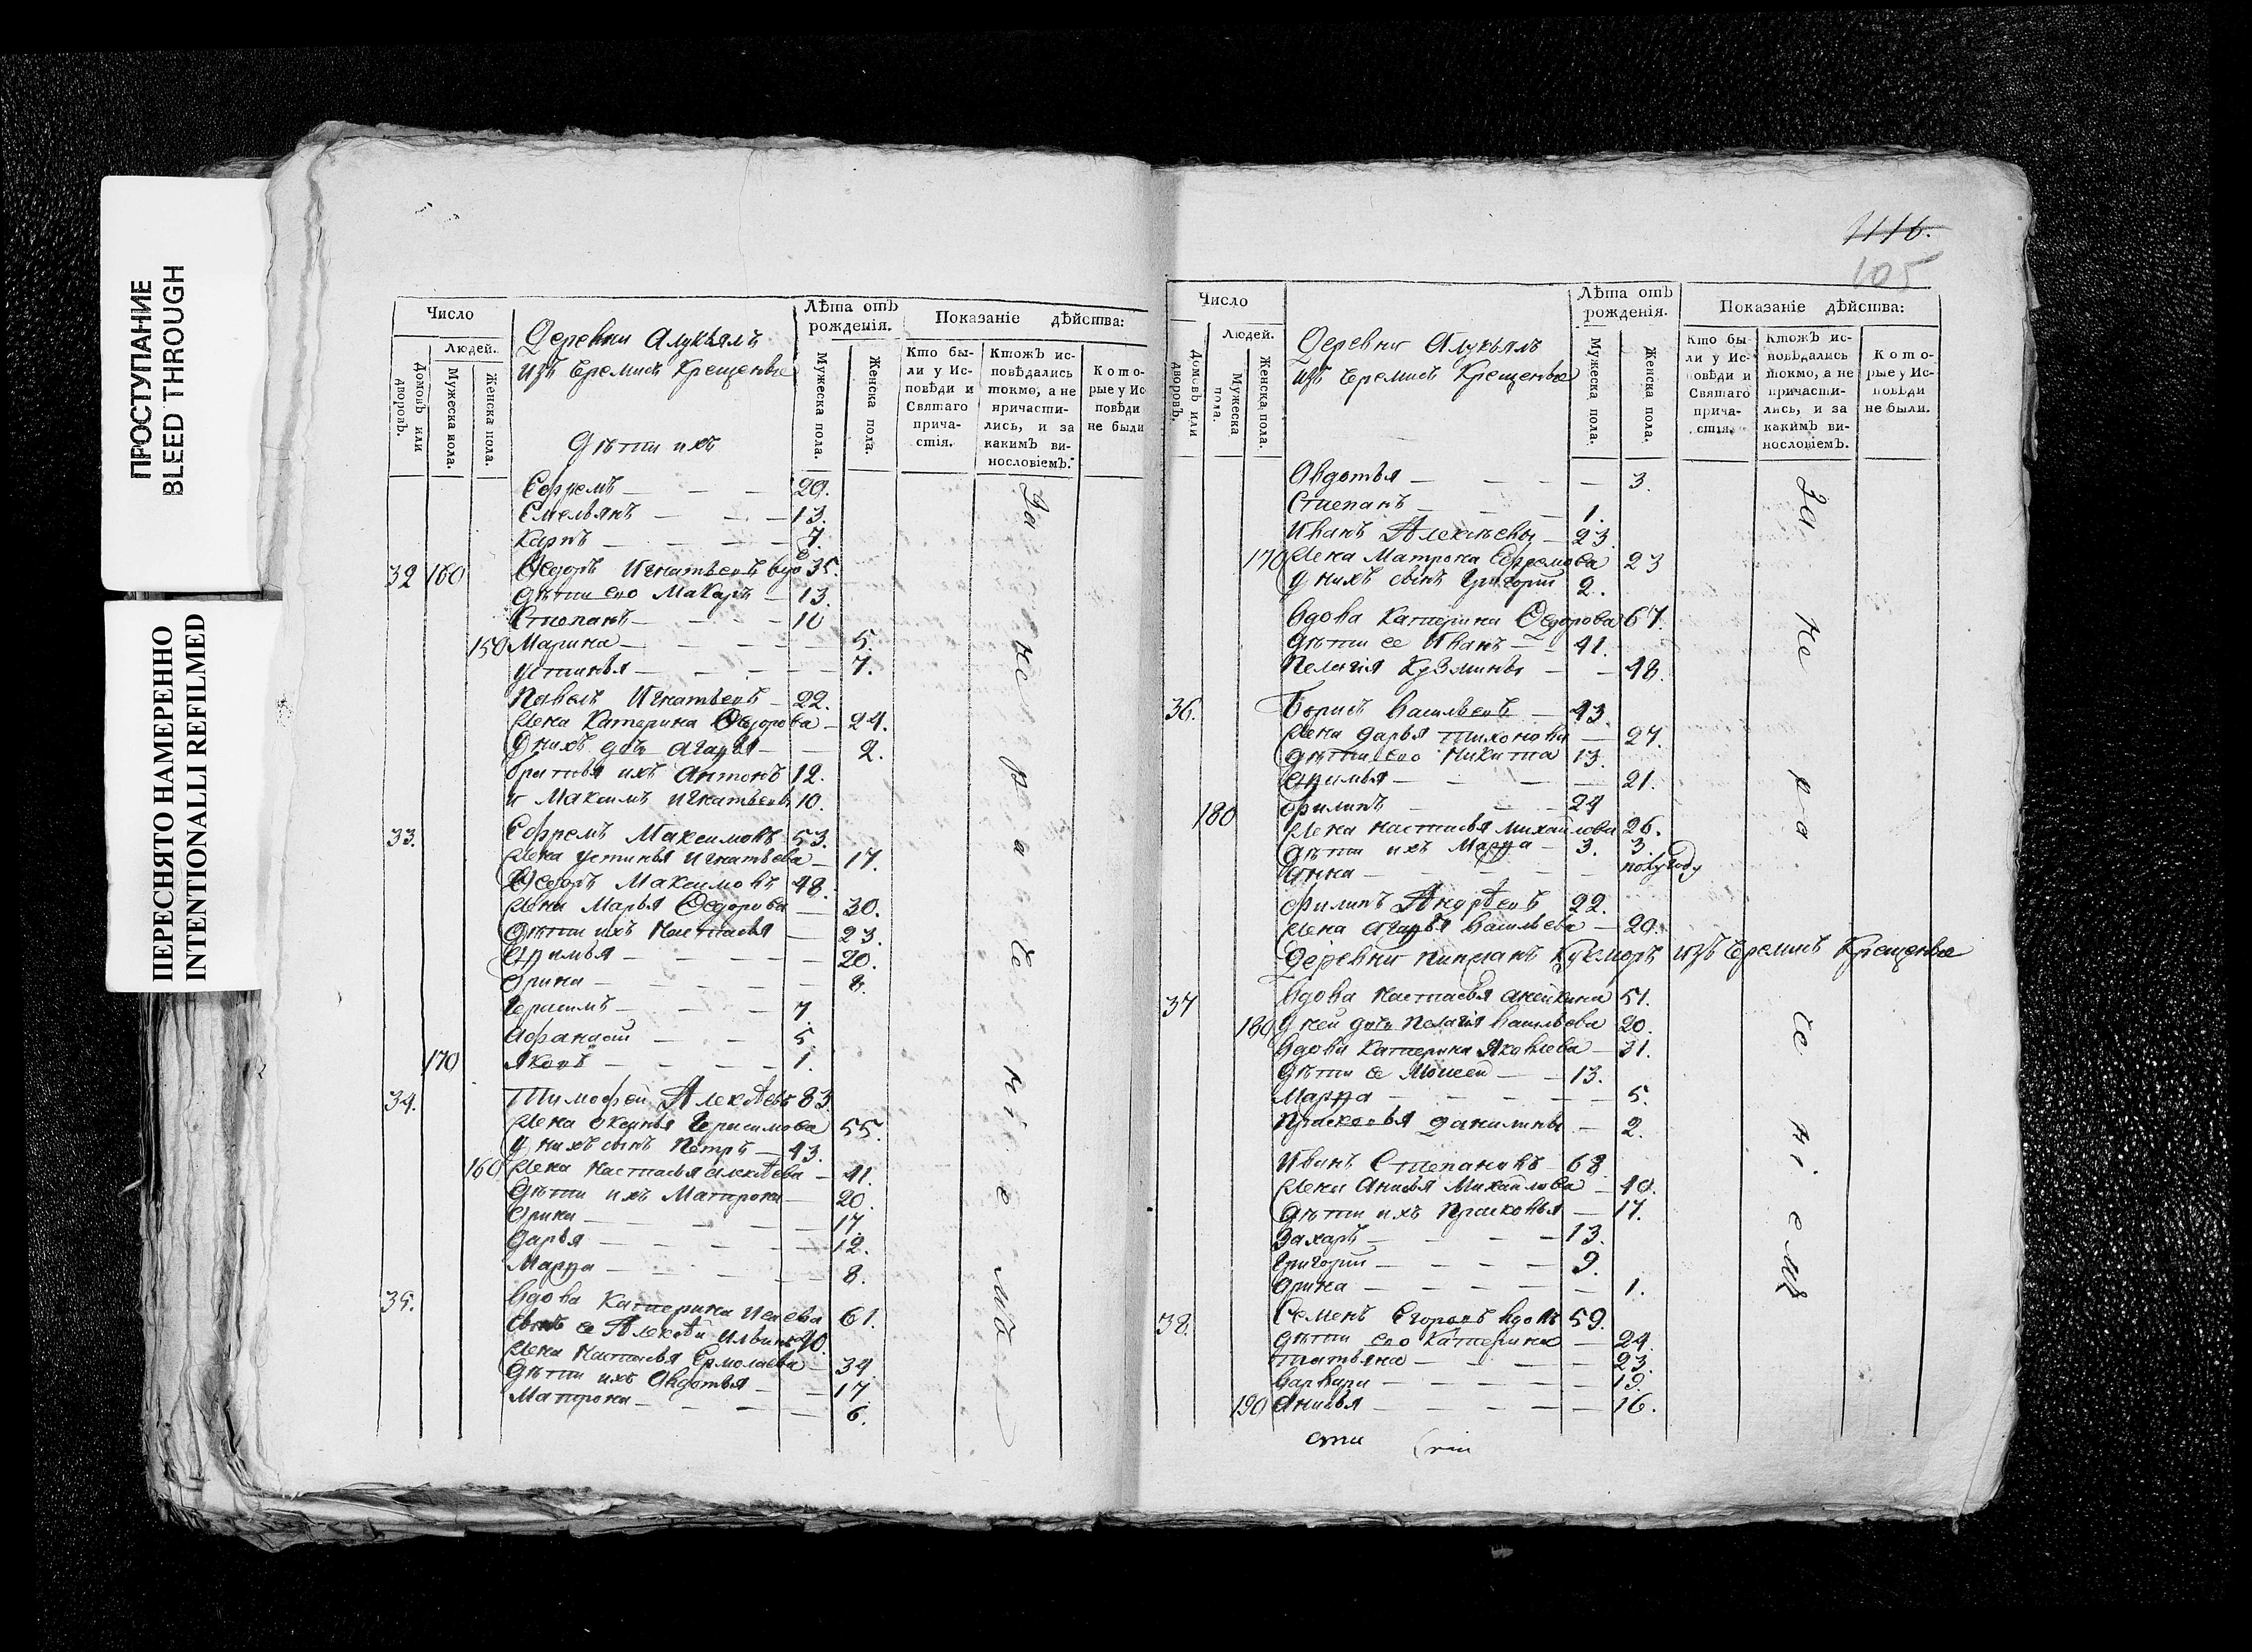 ПРОСТУПАНИЕ
BLEED THROUGH
ПЕРЕСНЯТО НАМЕРЕННО
INTENTIONALLI REFILMED
Число
Людей.
Домовъ или дворовъ.
Мужеска пола.
Женска пола.
Деревни Алукьялъ
изъ Черемисъ Крещеные
Дѣти ихъ
Лѣта отъ рожденія.
Мужеска пола.
Женска пола.
Показаніе дѣйства:
Кто бы-
ли у Ис-
повѣди и
Святаго
прича-
стія.
Ктожъ ис-
повѣдались
токмо, а не
причасти-
лись, и за
какимъ ви-
нословіемъ.
Кото-
рые у Ис
повѣди
не были
Ефремъ 29.
Емельянъ 13.
Карпъ 7.
32 160 Ѳедоръ Игнатьевъ вдо 35.
Дѣти его Макаръ 13.
Степанъ 10
150 Марина 5.
Устинья 7.
Павелъ Игнатьевъ 22.
Жена Катерина Ѳедорова 24.
У нихъ дочь Агафья 2.
Братья ихъ Антонъ 12.
и Максимъ Игнатьевы 10.
33. Ефремъ Максимовъ 53.
Жена Устинья Игнатьева 17.
Ѳедоръ Максимовъ 48.
Жена Марья Ѳедорова 30.
Дѣти ихъ Настасья 23.
20.
Орина 8.
Герасимъ 7.
Афанасій 5.
170 Яковъ 1.
34. Тимофей Алексѣевъ 83.
Жена Ксенья Герасимова 55.
У нихъ сынъ Петръ 43.
160 Жена Настасья Алексѣева 41.
Дѣти ихъ Матрона 20.
Орина 17.
Дарья 12.
Марфа 8.
35. Вдова Катерина 61.
сынъ ее Алексѣй Ильинъ 40.
Жена Настасья Ермолаева 34.
Дѣти ихъ Авдотья 17.
Матрона 6.
За нераченіемъ
1116.
105
Число
Людей.
Домовъ или дворовъ.
Мужеска пола.
Женска пола.
Деревни Алукьялъ
изъ Черемисъ Крещеные
Лѣта отъ рожденія.
Мужеска пола.
Женска пола.
Показаніе дѣйства:
Кто бы-
ли у Ис-
повѣди и
Святаго
прича-
стія.
Ктожъ ис-
повѣдались
токмо, а не
причасти-
лись, и за
какимъ ви-
нословіемъ.
Кото-
рые у Ис-
повѣди
не были.
Авдотья 3.
Степанъ 1.
Иванъ Алексѣевъ 23.
170 Жена Матрона Ефремова 23
У нихъ сынъ Григорій 2.
Вдова Катерина Ѳедорова 67.
Дѣти ее Иванъ 41.
Пелагія Кузмина 48.
36. Борисъ Васильевъ 43.
Жена Дарья Тихонова 27.
Дѣти его Никита 13.
21.
180 Филипъ 24
Жена Настасья Михайлова 26.
Дѣти ихъ Марфа 3. 3.
Анна полугоду
Филипъ Андрѣевъ 22.
Жена Агафья Васильева 20.
Деревни Кукморъ изъ Черемисъ Крещеные
37 Вдова Настасья 51.
180 У ней дочь Пелагія Васильева 20.
Вдова Катерина Яковлева 31.
Дѣти ее Моисей 13.
Марфа 5.
Прасковья Данилина 2.
Иванъ Степановъ 68
Жена Анисья Михайлова 40.
Дѣти ихъ Прасковья 17.
Захаръ 13.
Григорій 9.
Орина 1.
38. Семенъ Егоровъ вдовъ 59.
Дѣти его Катерина 24.
Татьяна 23.
Варвара 19.
190 Анисья 16.
За нераченіемъ